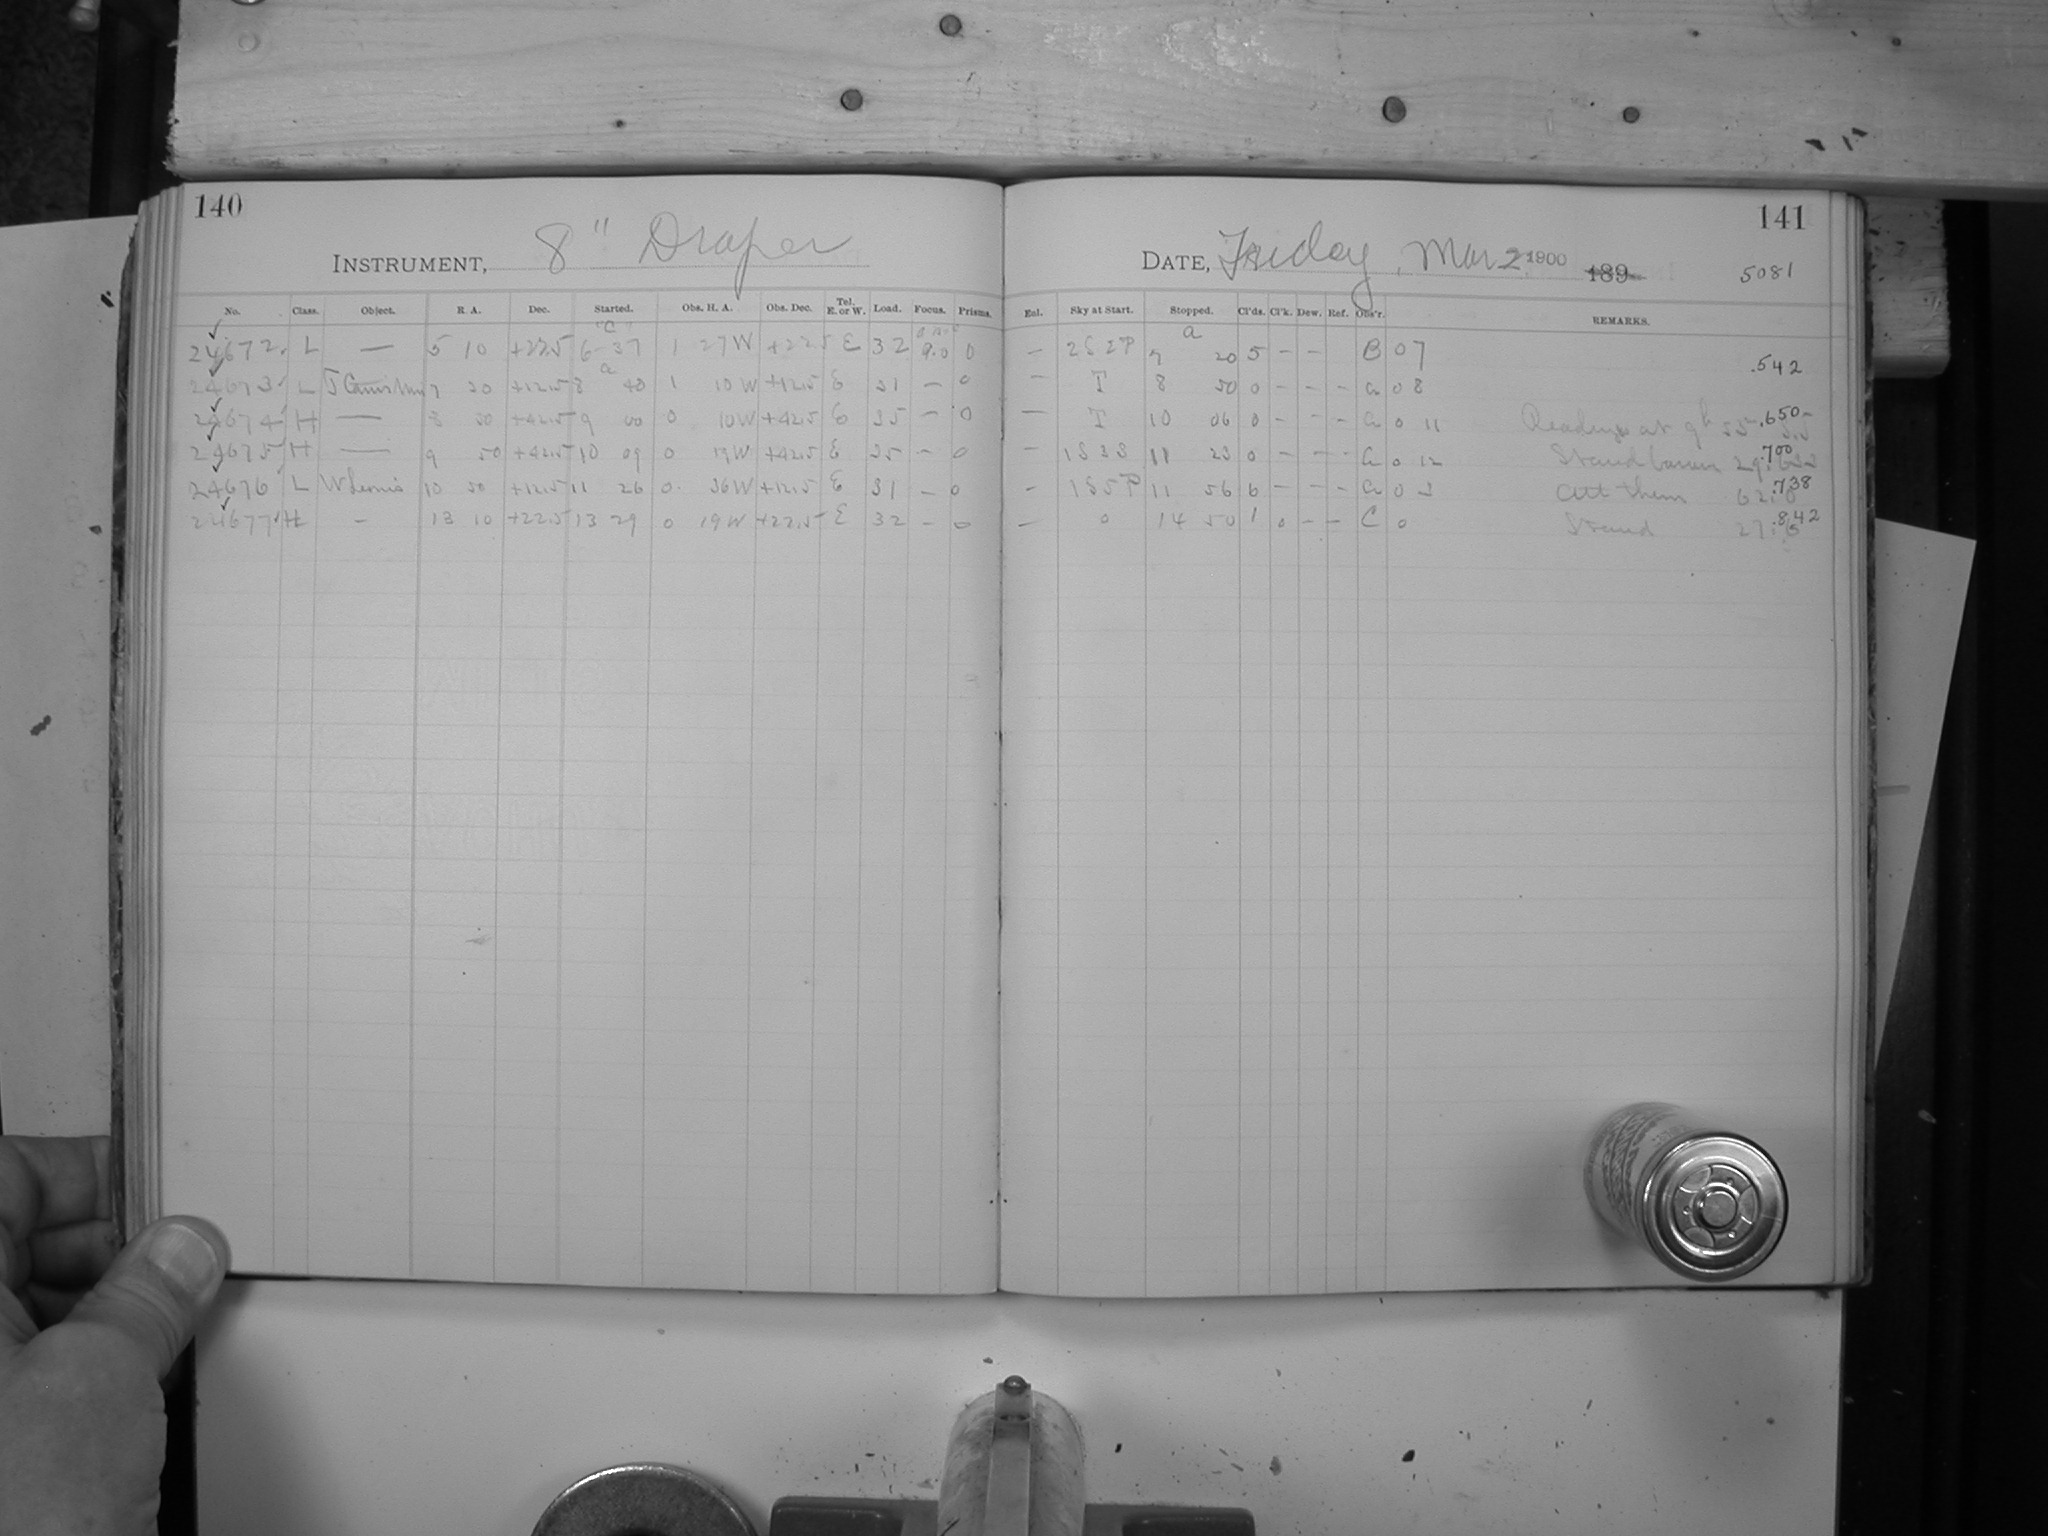 140
INSTRUMENT, 8" Draper
No. Class. Object. R. A. Dec. Started. Obs. H. A. Obs. Dec. Tel. E. or W. Load. Focus. Prisms.
"C"
24672 L — 5 10 +22.5 6 37 1 27W +22.5 E 32 9.0 0
a
24673 L 7 30 +12.5 8 40 1 10W +12.5 E 31 — 0
24674 H — 8 50 +42.5 9 00 0 10W +42.5 E 35 — 0
24675 H — 9 50 +42.5 10 09 0 19W +42.5 E 35 — 0
24676 L W Leonis 10 50 +12.5 11 26 0 36W +12.5 E 31 — 0
24677 H — 13 10 +22.5 13 29 0 19W +22.5 E 32 — 0
141
DATE, Friday, Mar 2 1900 189 5081
Enl. Sky at Start. Stopped. Cl'ds. Cl'k. Dew. Ref. Obs'r. REMARKS.
a
— 2S2P 7 20 5 — — B 07 .542
— T 8 50 0 — — — a 08
— T 10 06 0 — — — a 0 11 Readings at 9h 55m .650
— 1S3S 11 23 0 — — — a 0 12 Stand barom .700
— 1S5P 11 56 6 — — — a 0 3 att therm 62.0 .738
— 0 14 50 1 0 — — C 0 Stand .842